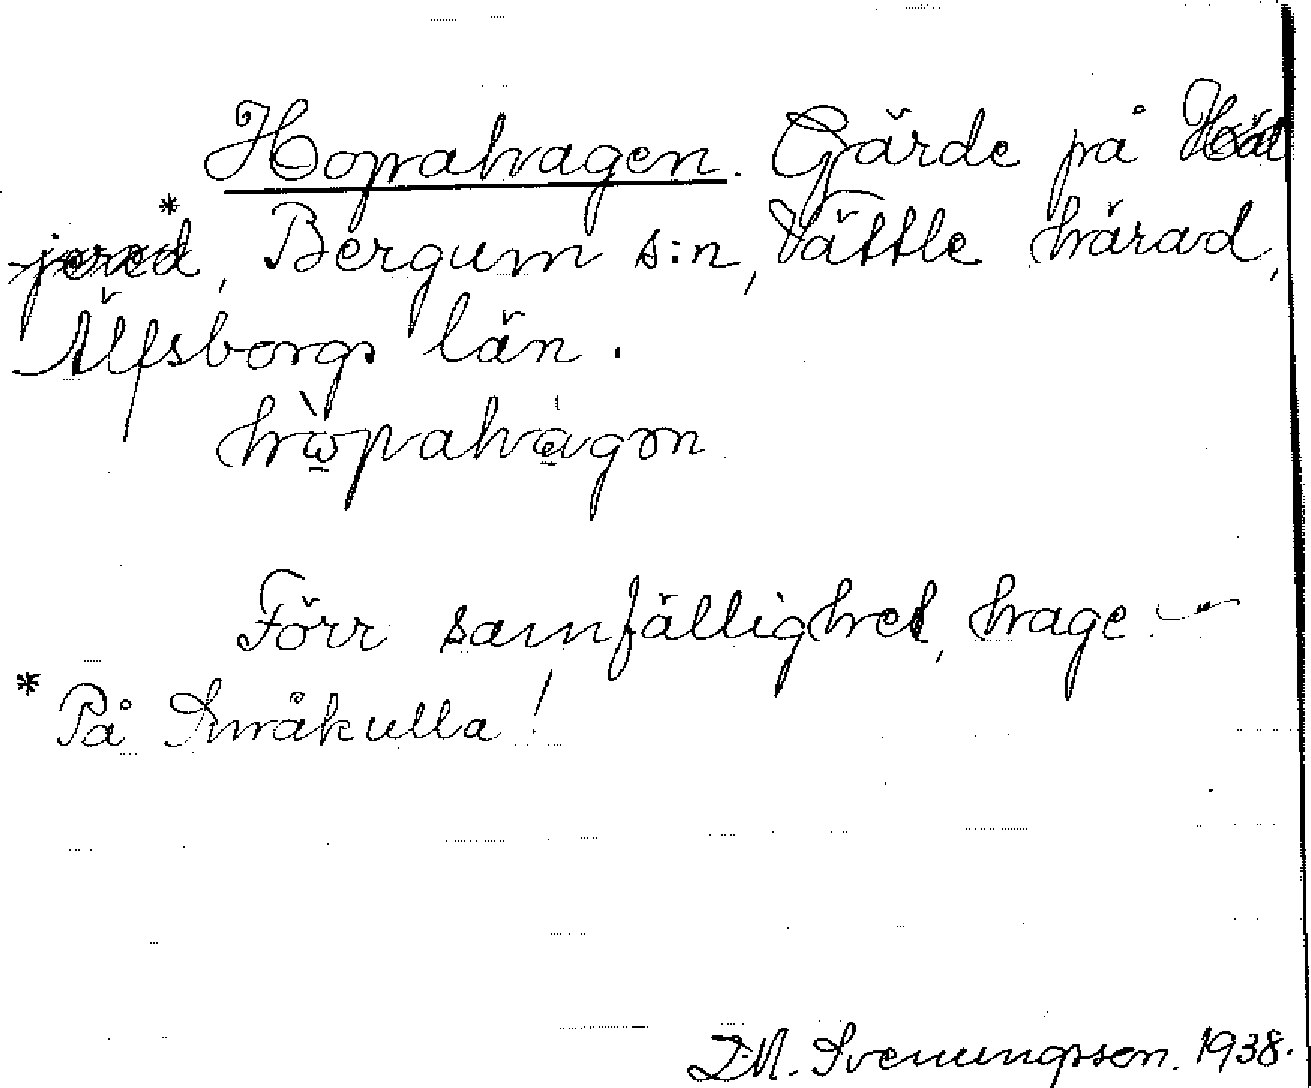 Hopahagen. Gärde på
jered*, Bergum s:n, Vättle härad,
Älfsborgs län.
hòpahagen
Förr samfällighet, hage.—
* På Småkulla!
D.N. Svenungsson. 1938.